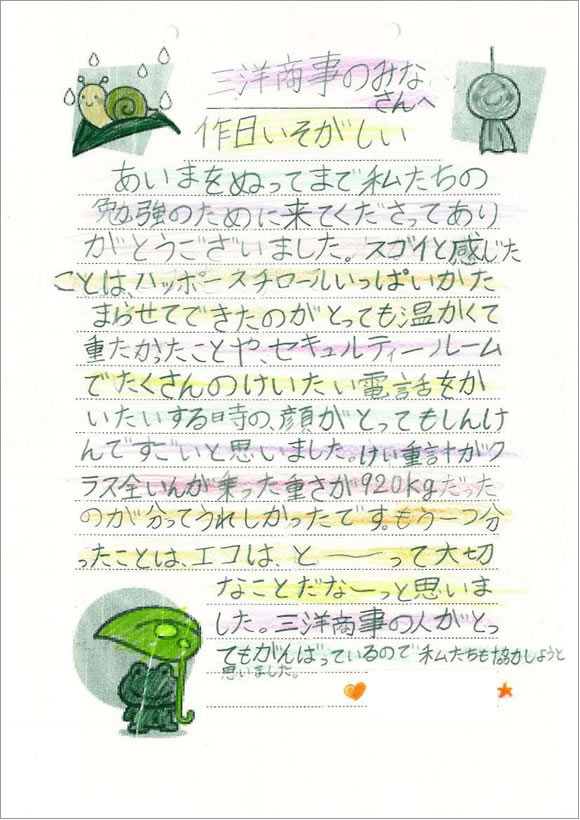 三洋商事のみな
さんへ
作日いそがしい
あいまをぬってまで私たちの
勉強のために来てくださってあり
がとうございました。スゴイと感じた
ことは、ハッポースチロールいっぱいかた
まらせてできたのがとっても温かくて
重たかったことや、セキュルティールーム
でたくさんのけいたい電話をか
いたいする時の、顔がとってもしんけ
んですごいと思いました。けい重計がク
ラス全いんが乗った重さが920kgだった
のが分ってうれしかったです。もう一つ分
ったことは、エコは、と――って大切
なことだなーっと思いま
した。三洋商事の人がとっ
てもがんばっているので私たちも協力しようと
思いました。